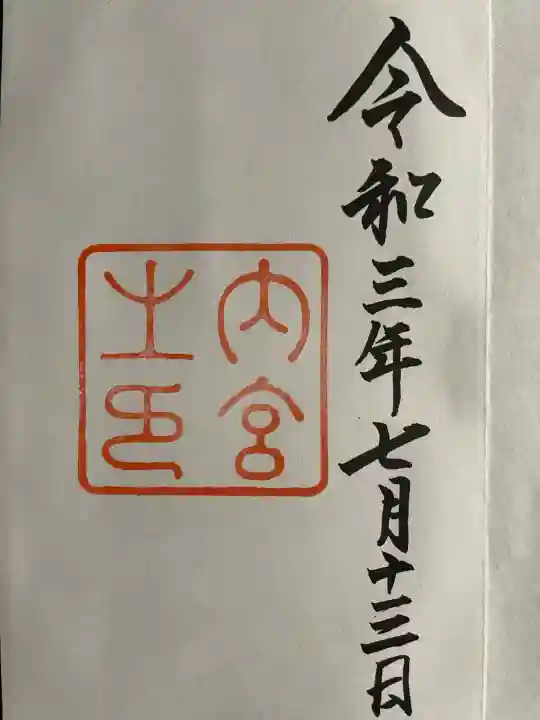 令和三年七月十三日
内宮
之印